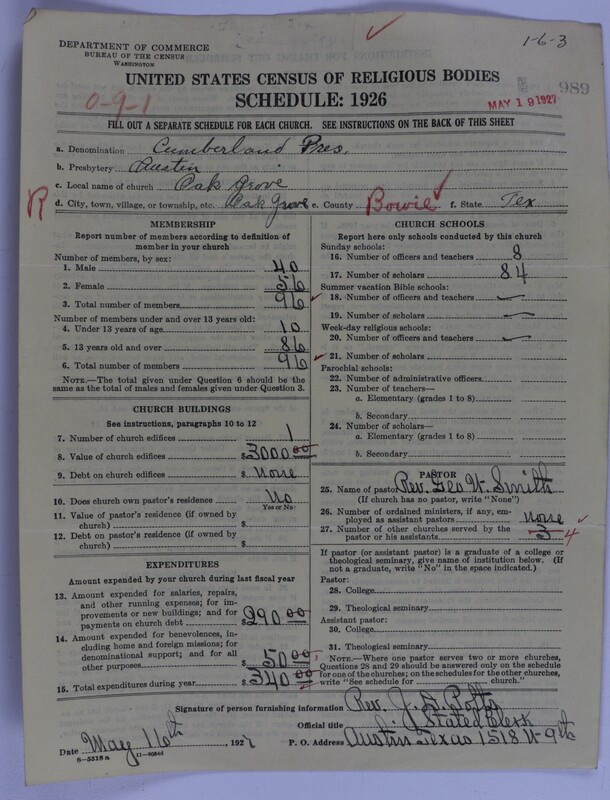 DEPARTMENT OF COMMERCE
BUREAU OF THE CENSUS
WASHINGTON
1-6-3
UNITED STATES CENSUS OF RELIGIOUS BODIES
SCHEDULE: 1926
0-9-1
MAY 19 1927
989
FILL OUT A SEPARATE SCHEDULE FOR EACH CHURCH. SEE INSTRUCTIONS ON THE BACK OF THIS SHEET
a. Denomination Cumberland Pres.
b. Presbytery Austin
c. Local name of church Oak Grove
R d. City, town, village, or township, etc. Oak Grove e. County Bowie f. State Tex
MEMBERSHIP
Report number of members according to definition of member in your church
Number of members, by sex:
1. Male 40
2. Female 56
3. Total number of members 96
Number of members under and over 13 years old:
4. Under 13 years of age 10
5. 13 years old and over 86
6. Total number of members 96
NOTE.—The total given under Question 6 should be the same as the total of males and females given under Question 3.
CHURCH BUILDINGS
See instructions, paragraphs 10 to 12
7. Number of church edifices 1
8. Value of church edifices $3000 00
9. Debt on church edifices $ none
10. Does church own pastor's residence No
Yes or No
11. Value of pastor's residence (if owned by church) $
12. Debt on pastor's residence (if owned by church) $
EXPENDITURES
Amount expended by your church during last fiscal year
13. Amount expended for salaries, repairs, and other running expenses; for improvements or new buildings; and for payments on church debt $290 00
14. Amount expended for benevolences, including home and foreign missions; for denominational support; and for all other purposes $50 00
15. Total expenditures during year $340 00
CHURCH SCHOOLS
Report here only schools conducted by this church
Sunday schools:
16. Number of officers and teachers 8
17. Number of scholars 84
Summer vacation Bible schools:
18. Number of officers and teachers
19. Number of scholars
Week-day religious schools:
20. Number of officers and teachers
21. Number of scholars
Parochial schools:
22. Number of administrative officers
23. Number of teachers—
a. Elementary (grades 1 to 8)
b. Secondary
24. Number of scholars—
a. Elementary (grades 1 to 8)
b. Secondary
PASTOR
25. Name of pastor Rev. Geo W. Smith
(If church has no pastor, write "None")
26. Number of ordained ministers, if any, employed as assistant pastors none
27. Number of other churches served by the pastor or his assistants 3 4
If pastor (or assistant pastor) is a graduate of a college or theological seminary, give name of institution below. (If not a graduate, write "No" in the space indicated.)
Pastor:
28. College
29. Theological seminary
Assistant pastor:
30. College
31. Theological seminary
NOTE.—Where one pastor serves two or more churches, Questions 28 and 29 should be answered only on the schedule for one of the churches; on the schedules for the other churches, write "See schedule for church."
Signature of person furnishing information Rev. J. S. Potts
Official title Stated Clerk
Date May 16th, 1927 P. O. Address Austin Texas 1518 W-9th
8-5318a